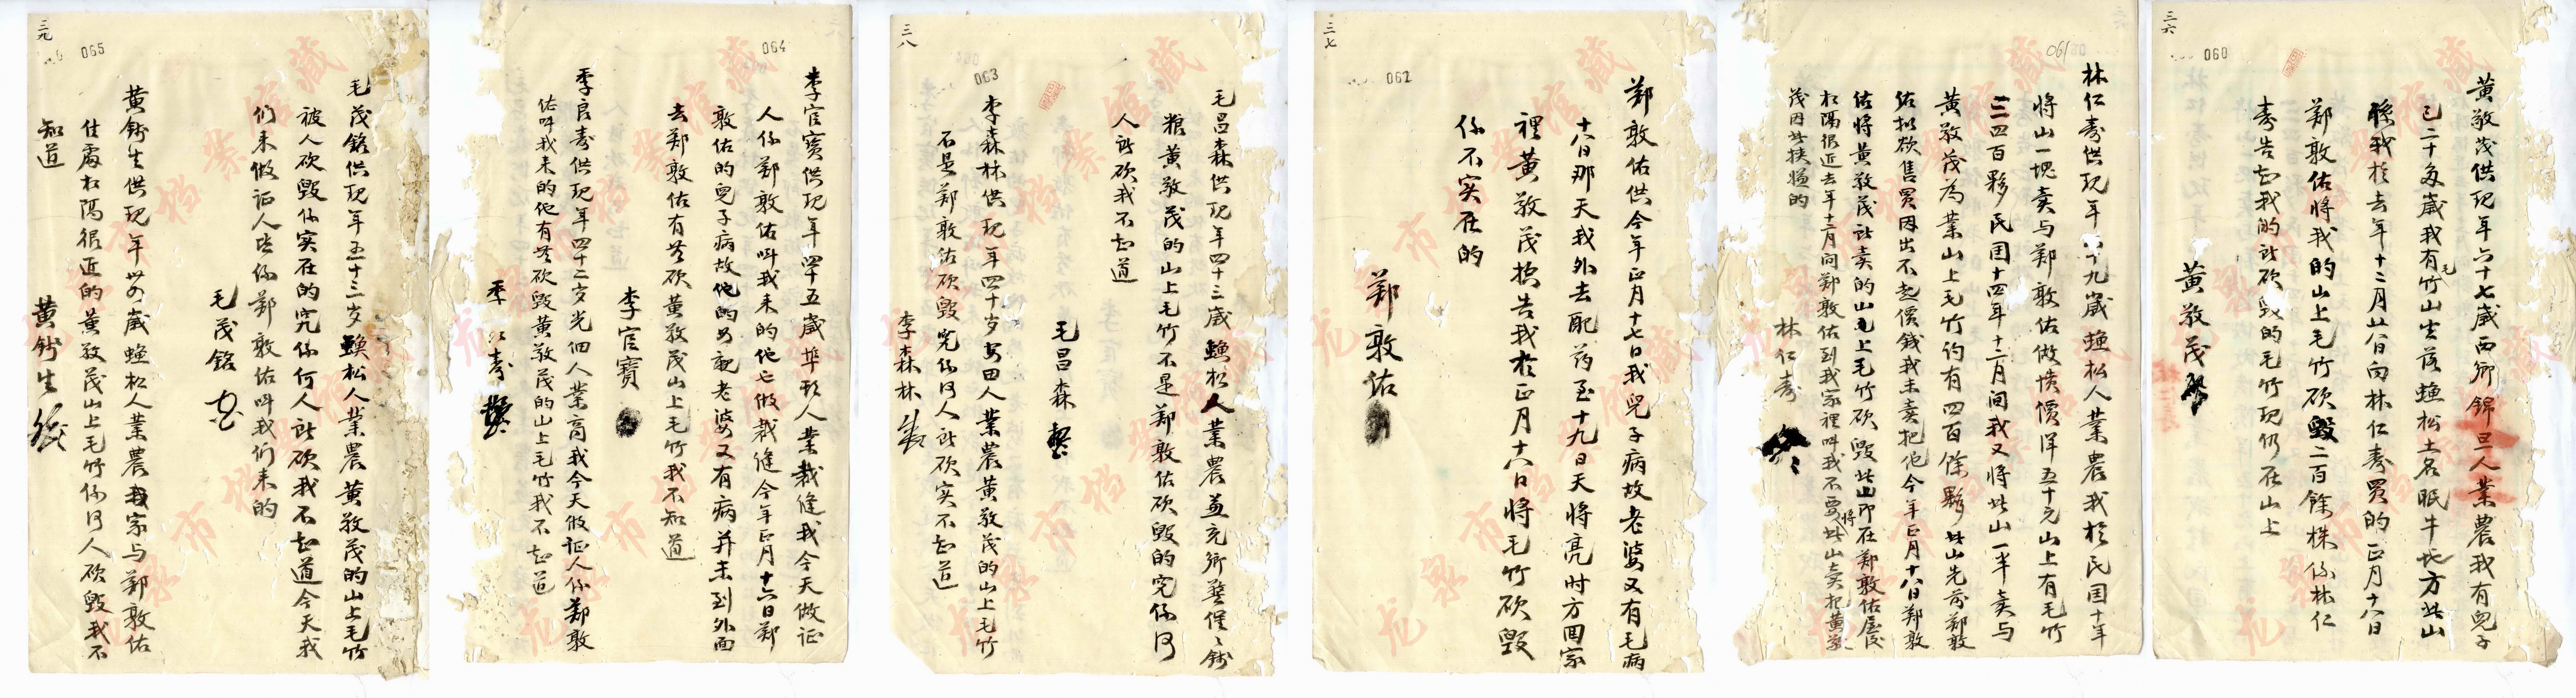 三六
060
黃敬茂供現年六十七歲西鄉錦旦人業農我有兒子
已二十多歲我有毛竹山坐落蛐松土名眠牛地方此山
係我於去年十二月廿八日向林仁壽買的正月十八日
鄭敦佑將我的山上毛竹砍毀二百餘株係林仁
壽告知我的所砍毀的毛竹現仍在山上
黃敬茂
061
林仁壽供現年六十九歲蛐松人業農我於民国十年
將山一塊卖与鄭敦佑做墳價洋五十元山上有毛竹
三四百夥民囯十四年十二月间我又将此山一半卖与
黃敬茂為業山上毛竹约有四百餘夥此山先前鄭敦
佑拟欲售買因出不起價錢我未卖把他今年正月十八日鄭敦
佑將黃敬茂所卖的山上毛竹砍毀此山即在鄭敦佑屋後
相隔很近去年十二月间鄭敦佑到我家裡叫我不要将此山卖把黃敬
茂因此挟嫌的
林仁壽
三七
062
鄭敦佑供今年正月十七日我兒子病故老婆又有毛病
十八日那天我外去配药至十九日天将亮时方囬家
裡黃敬茂控告我於正月十八日將毛竹砍毀
係不实在的
鄭敦佑
三八
063
毛昌森供现年四十三歲蛐松人業農並充鄉警催錢
粮黃敬茂的山上毛竹不是鄭敦佑砍毀的究係何
人所砍我不知道
毛昌森
李森林供现年四十岁安田人業農黃敬茂的山上毛竹
不是鄭敦佑砍毀究係何人所砍实不知道
李森林
064
李宦寶供现年四十五歲坪形人業裁縫我今天做证
人係鄭敦佑叫我来的他七做裁縫今年正月十六日鄭
敦佑的兒子病故他的母親老婆又有病并未到外面
去鄭敦佑有无砍黃敬茂山上毛竹我不知道
李宦寶
季良壽供现年四十二岁光佃人業商我今天做证人係鄭敦
佑叫我来的他有无砍毀黃敬茂的山上毛竹我不知道
季良壽
三九
065
毛茂銘供现年五十三岁蛐松人業農黃敬茂的山上毛竹
被人砍毀係实在的究係何人所砍我不知道今天我
们来做证人皆係鄭敦佑叫我们来的
毛茂銘
黃錢生供现年卅四歲蛐松人業農我家与鄭敦佑
住處相隔很近的黃敬茂山上毛竹係何人砍毀我不
知道
黃錢生
龙泉市档案馆藏